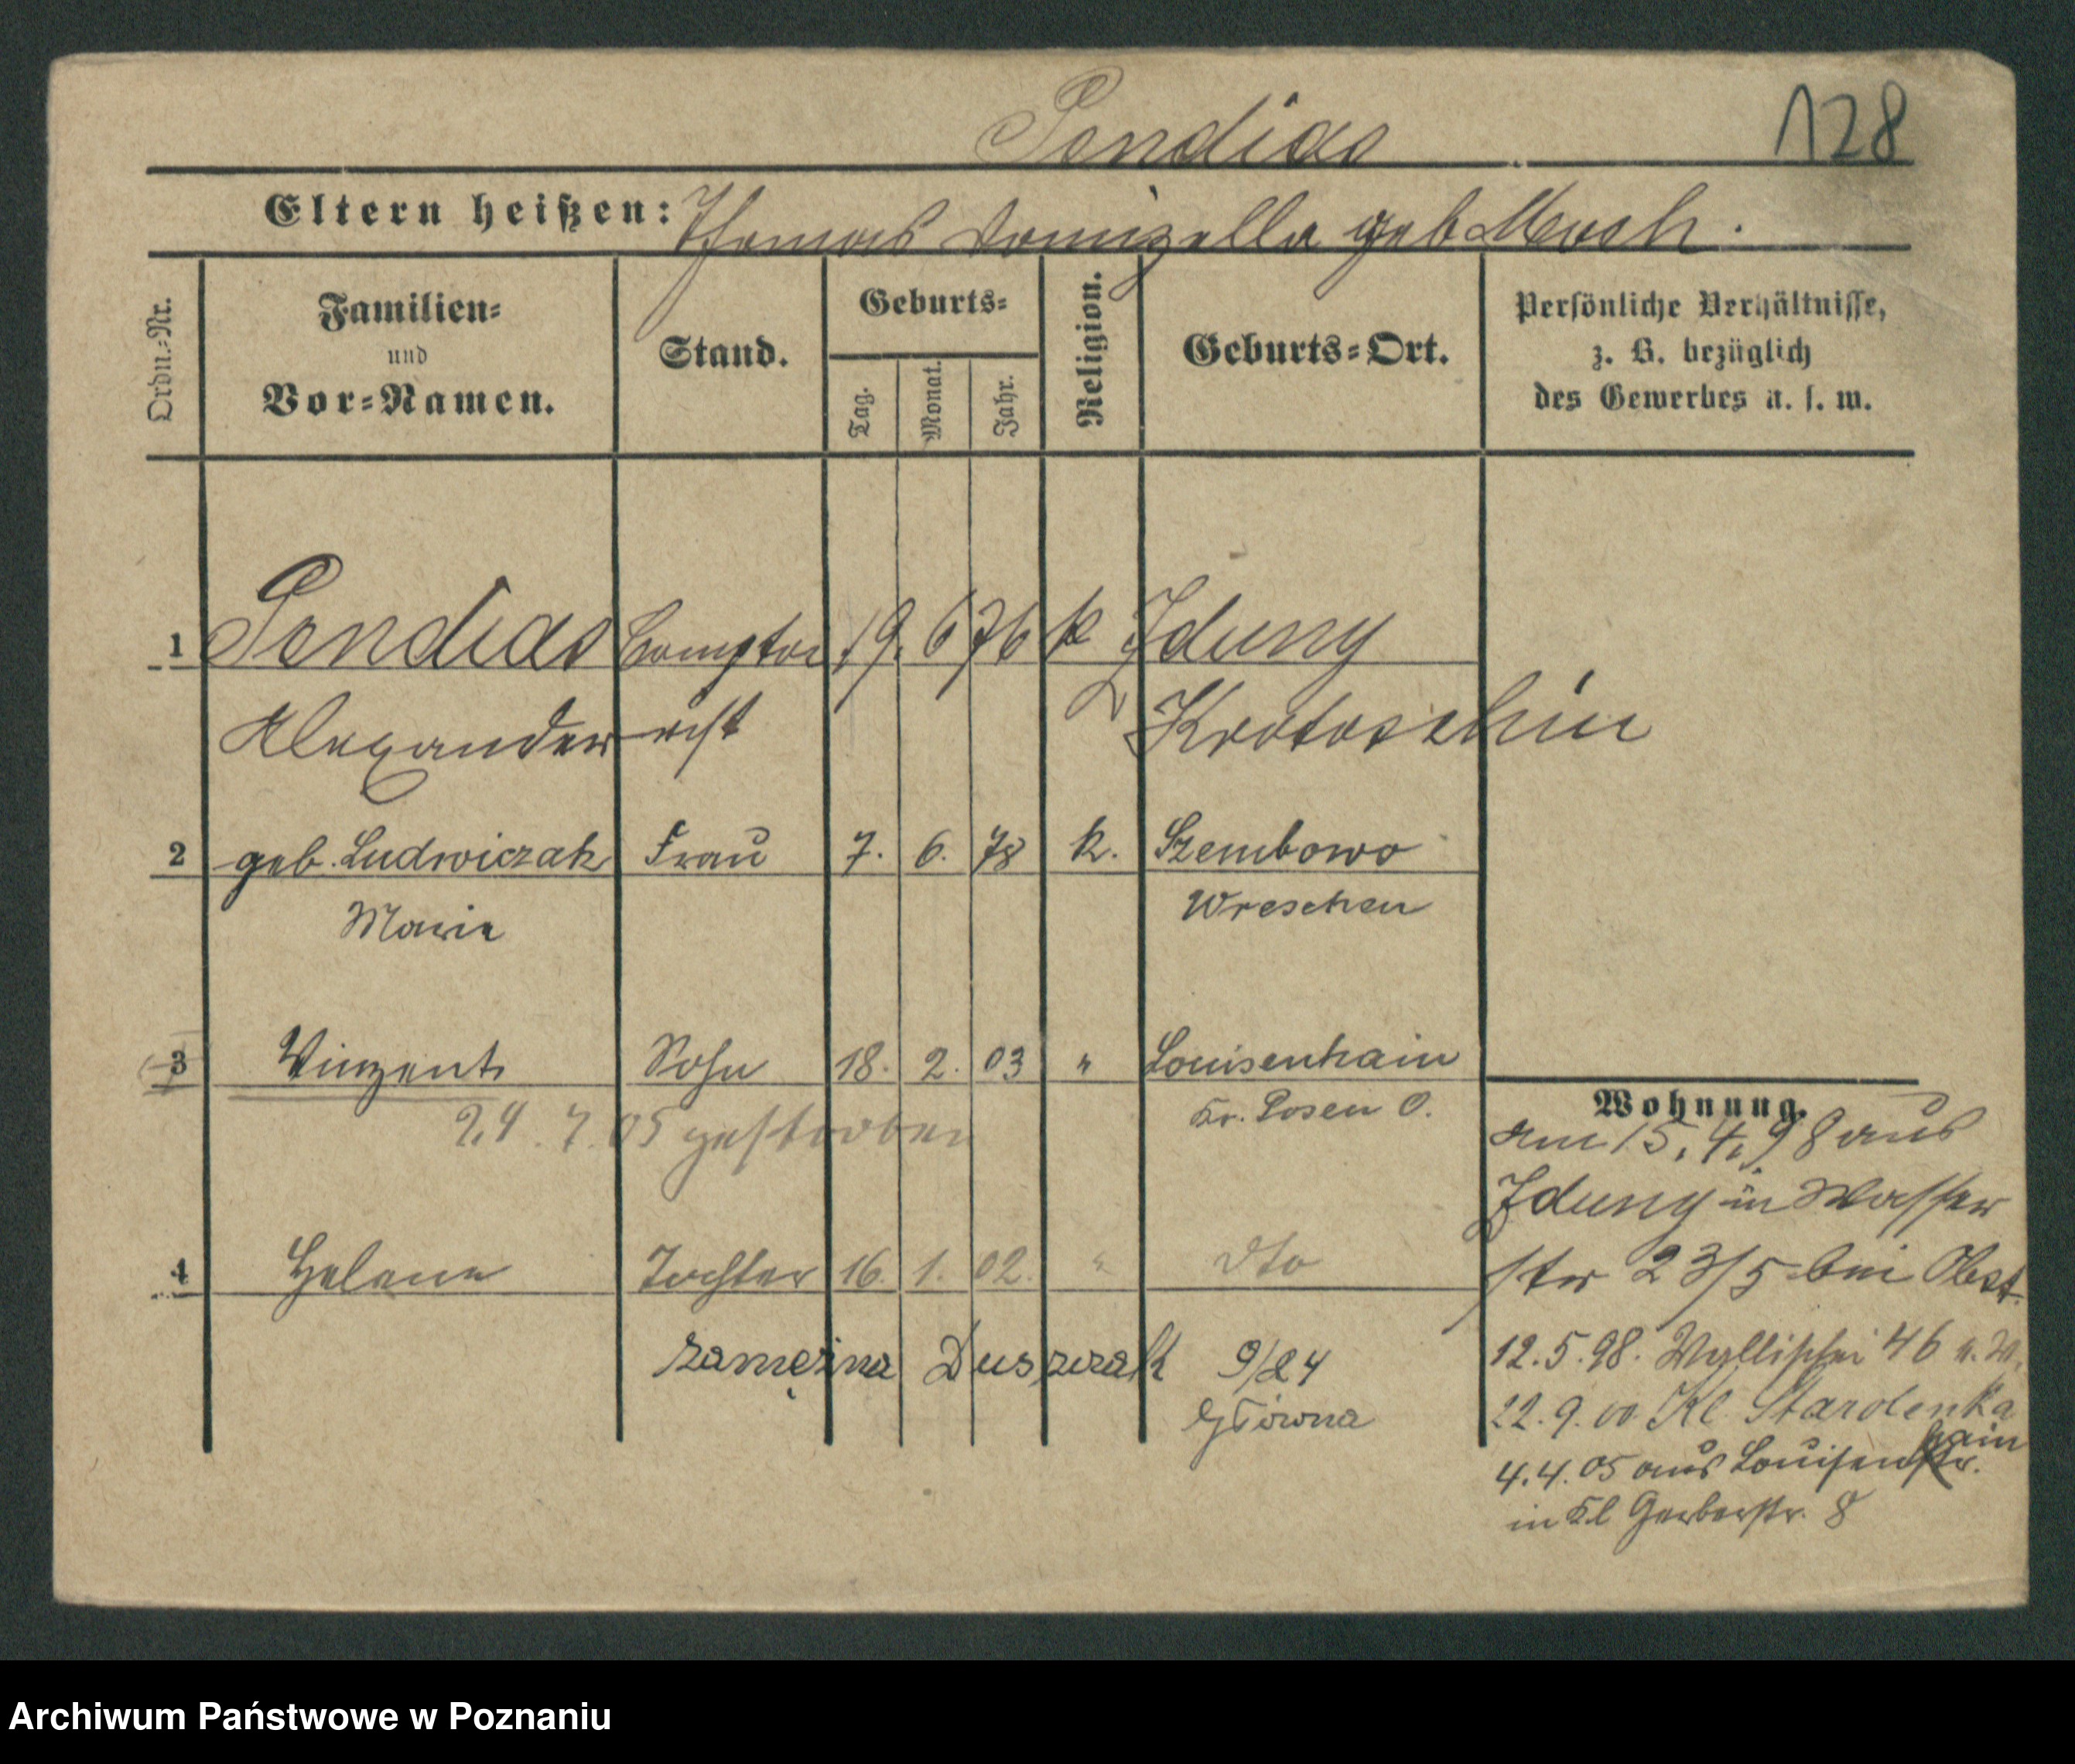 Sendias
128
Eltern heißen: Thomas Domizella geb Mosch.
Ordn.-Nr.
Familien-
und
Vor-Namen.
Stand.
Geburts-
Tag.
Monat.
Jahr.
Religion.
Geburts-Ort.
Persönliche Verhältnisse,
z. B. bezüglich
des Gewerbes u. s. w.
1 Sendias Compto 19. 6 76 k Zduny
Alexander rist Krotoschin
2 geb. Ludwiczak Frau 7. 6. 78 k. Szembowo
Marie Wreschen
3 Vinzent Sohn 18. 2. 03 " Louisenhain
24. 7. 05 gestorben Kr. Posen O.
4 Helene Tochter 16. 1. 02. " dto
zamężna Duszczak 9/24
Główna
Wohnung.
am 15. 4. 98 aus
Zduny in Wasser
str 23/5 bei Obst.
12.5.98. Wallischei 46
22.9.00. Kl Starolenka
4.4.05 aus Louisenhain
in Kl Gerberstr. 8
Archiwum Państwowe w Poznaniu